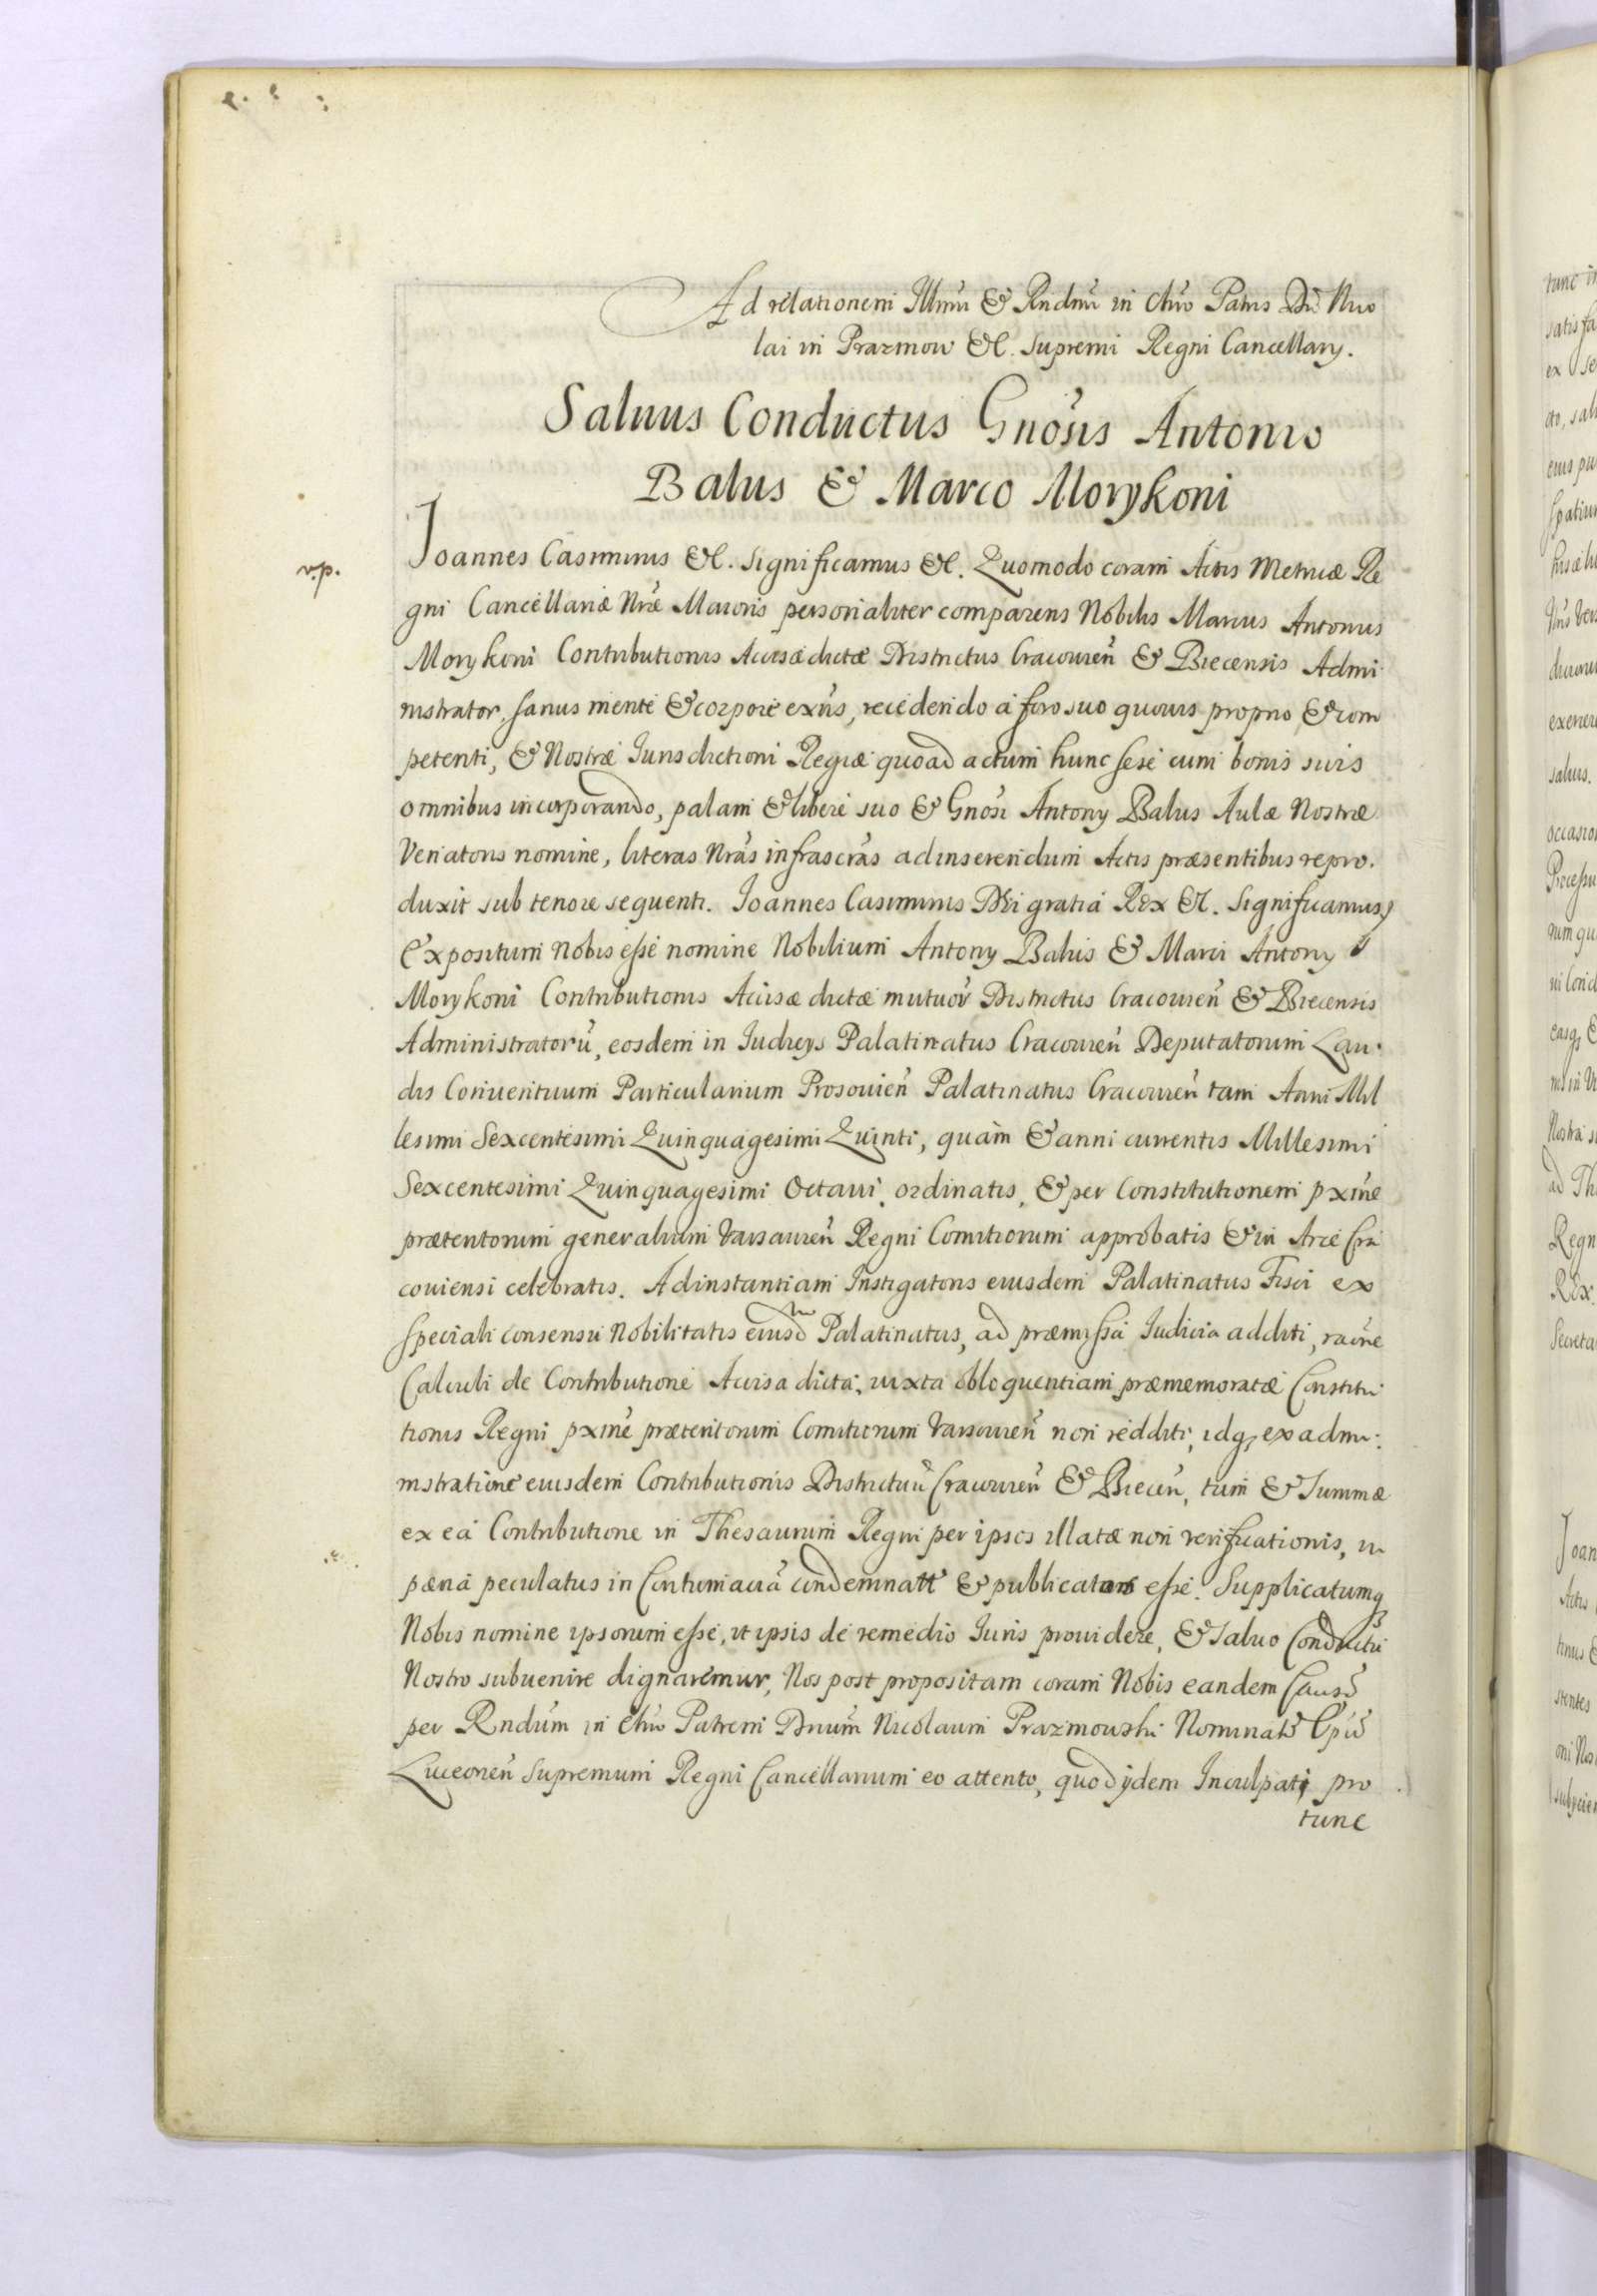 Ad relationem Illmi & Rndmi in Chro Patris Dni Nico
lai in Prazmow &c. Supremi Regni Cancellary.
Saluus Conductus Gnosis Antonio
Balus & Marco Morykoni
v.p.
Joannes Casimirus &c. Significamus &c. Quomodo coram Actis Metricæ Re
gni Cancellariæ Nræ Maioris personaliter comparens Nobilis Marcus Antonius
Morykoni Contributionis Accisæ dictæ Districtus Cracouien & Biecensis Admi
nistrator, sanus mente & corpore exñs, recedendo à foro suo quouis proprio, & com
petenti, & Nostræ Iurisdictioni Regiæ quoad actum hunc sese cum bonis suis
omnibus incorporando, palam & liberè suo & Gnosi Antony Balus Aulæ Nostræ
Venatoris nomine, literas Nrãs infrascrãs ad inserendum Actis præsentibus repro.
duxit sub tenore sequenti. Joannes Casimirus Dei gratia Rex &c. Significamus,
Expositum Nobis esse nomine Nobilium Antony Balus & Marci Antony
Morykoni Contributionis Accisæ dictæ mutuor Districtus Cracouien & Biecensis
Administratorũ, eosdem in Iudicys Palatinatus Cracouien Deputatorum Lau.
dis Conuentuum Particularium Prosouien Palatinatus Cracouien tam Anni Mil
lesimi Sexcentesimi Quinquagesimi Quinti, quàm & anni currentis Millesimi
Sexcentesimi Quinquagesimi Octaui, ordinatis, & per Constitutionem pxime
præteritorum generalium Varsauien Regni Comitiorum approbatis & in Arce Cra
couiensi celebratis. Ad instantiam Instigatoris eiusdem Palatinatus Fisci ex
speciali consensu Nobilitatis eiusdem Palatinatus, ad præmissa Iudicia additi, raõne
Calculi de Contributione Accisa dicta, iuxta obloquentiam præmemoratæ Constitu
tionis Regni pxime præteritorum Comitiorum Varsouien non redditi, idq, ex admi.
nistratione eiusdem Contributionis Districtuũ Cracouien & Biecen, tum & Summæ
ex ea Contributione in Thesaurum Regni per ipsos illatæ non verificationis, in
pæna peculatus in Contumaciã condemnatt & publicatos esse. Supplicatumq
Nobis nomine ipsorum esse, vt ipsis de remedio Iuris prouidere, & Saluo Conductu
Nostro subuenire dignaremur, Nos post propositam coram Nobis eandem Causã
per Rndum in Chro Patrem Dnum Nicolaum Prazmowski Nominatũ Epũ
Luceoren Supremum Regni Cancellarium eo attento, quod ijdem Inculpati pro
tunc